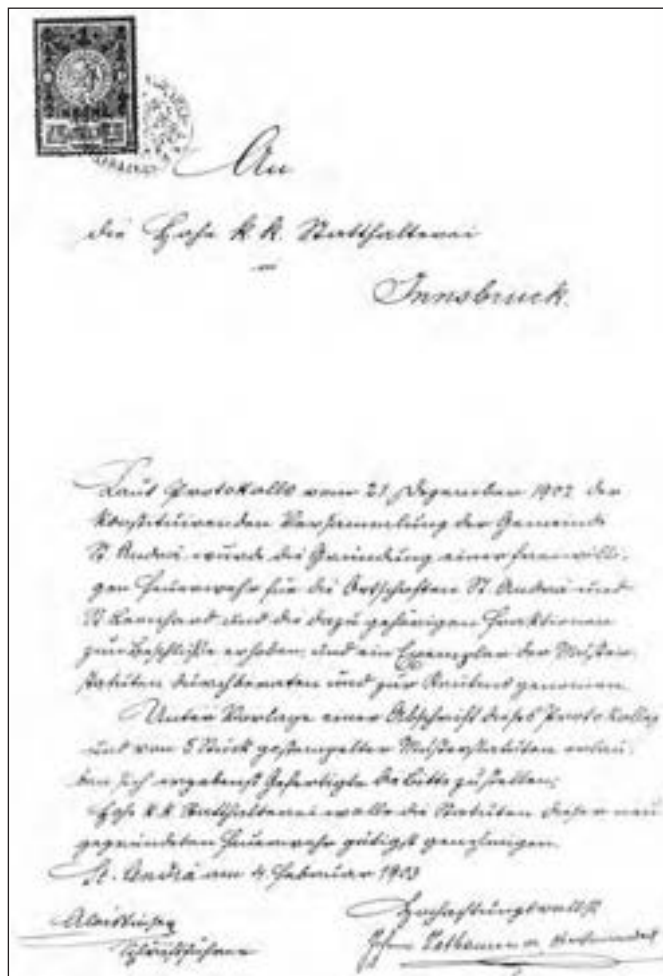 An
die Hohe k. k. Statthalterei
in
Innsbruck.
Laut Protokolls vom 21 Dezember 1902 der
konstituirenden Versammlung der Gemeinde
St Andrä wurde die Gründung einer freiwilli-
gen Feuerwehr für die Ortschaften St. Andrä und
St Leonhard und die dazu gehörigen Fraktionen
zum Beschluße erhoben, und ein Exemplar der Muster-
statuten durchberaten und zur genomen.
Unter Vorlage einer Abschrift dieses Protokolles
und von 5 Stück gestempelter Musterstatuten erlau-
ben sich ergebenst Gefertigte die Bitte zu stellen:
Hohe k. k. Statthalterei wolle die Statuten dieser neu
gegründeten Feuerwehr gütigst genehmigen.
St. Andrä am 4. Februar 1903
Hochachtungsvollst
Alois
Schriftführer
Johann